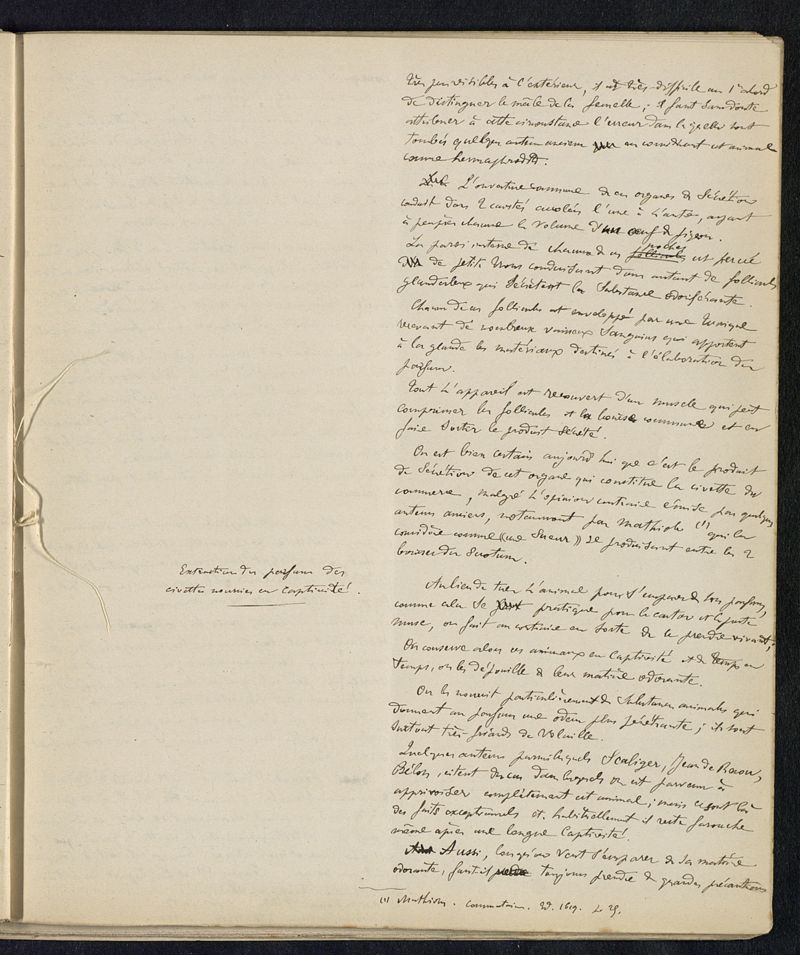 très peu visibles à l'extérieur, il est très difficile au 1er abord
de distinguer le mâle de la femelle ; il faut sans doute
attribuer à cette circonstance l'erreur dans laquelle sont
tombés quelques auteurs anciens en considérant cet animal
comme hermaphrodite.
L'ouverture commune de ces organes de sécrétion
conduit dans 2 cavités accolées l'une à l'autre, ayant
à peu près chacune le volume d'un œuf de pigeon.
La paroi interne de chacune de ces poches est percée
de petits trous conduisant dans autant de follicules
glanduleux qui sécrètent la substance odoriférante.
Chacun de ces follicules est enveloppé par une tunique
recevant de nombreux vaisseaux sanguins qui apportent
à la glande les matériaux destinés à l'élaboration du
parfum.
Tout l'appareil est recouvert d'un muscle qui peut
comprimer les follicules et la bourse commune et en
faire sortir le produit sécrété.
On est bien certain aujourd'hui que c'est le produit
de sécrétion de cet organe qui constitue la civette du
commerce, malgré l'opinion contraire émise par quelques
auteurs anciens, notamment par Mathiole (1) qui la
considère comme "une sueur" se produisant entre les 2
bourses du scrotum.
Extraction du parfum des
civettes nourries en captivité.
Au lieu de tuer l'animal pour s'emparer de son parfum,
comme cela se pratique pour le castor et le porte
musc, on fait au contraire en sorte de le prendre vivant ;
On conserve alors ces animaux en captivité et de temps en
temps, on les dépouille de leur matière odorante.
On les nourrit particulièrement de substances animales qui
donnent au parfum une odeur plus pénétrante ; ils sont
surtout très friands de volaille.
Quelques auteurs parmi lesquels Scaliger, Jean de Renou,
Bélon, citent des cas dans lesquels on est parvenu à
apprivoiser complètement cet animal ; mais ce sont là
des faits exceptionnels et habituellement il reste farouche
même après une longue captivité.
Aussi, lorsqu'on veut s'emparer de sa matière
odorante, faut-il toujours prendre de grandes précautions
(1) Mathiole. Commentaires. Ed. 1619.